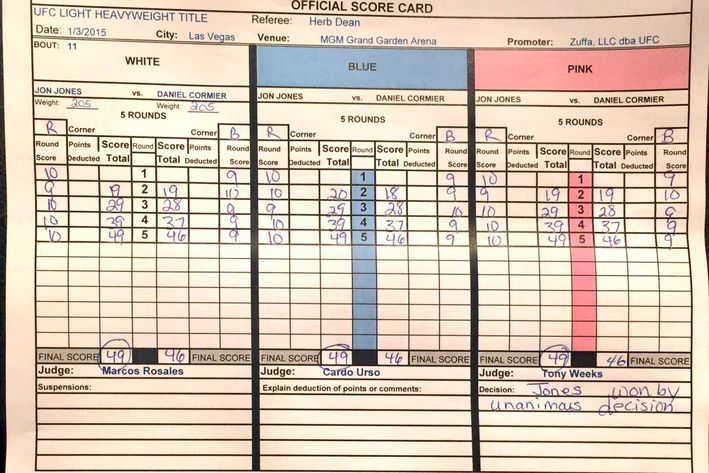 OFFICIAL SCORE CARD
UFC LIGHT HEAVYWEIGHT TITLE Referee: Herb Dean
Date: 1/3/2015 City: Las Vegas Venue: MGM Grand Garden Arena Promoter: Zuffa, LLC dba UFC
BOUT: 11
WHITE BLUE PINK
JON JONES vs. DANIEL CORMIER JON JONES vs. DANIEL CORMIER JON JONES vs. DANIEL CORMIER
Weight: 205 Weight: 205
5 ROUNDS 5 ROUNDS 5 ROUNDS
R Corner Corner B R Corner Corner B R Corner Corner B
Round Points Score Round Score Points Round Round Points Score Round Score Points Round Round Points Score Round Score Points Round
Score Deducted Total Total Deducted Score Score Deducted Total Total Deducted Score Score Deducted Total Total Deducted Score
10 1 9 10 1 9 10 1 9
9 19 2 19 10 10 20 2 18 9 9 19 2 19 10
10 29 3 28 9 9 29 3 28 10 10 29 3 28 9
10 39 4 37 9 10 39 4 37 9 10 39 4 37 9
10 49 5 46 9 10 49 5 46 9 10 49 5 46 9
FINAL SCORE 49 46 FINAL SCORE FINAL SCORE 49 46 FINAL SCORE FINAL SCORE 49 46 FINAL SCORE
Judge: Marcos Rosales Judge: Cardo Urso Judge: Tony Weeks
Suspensions: Explain deduction of points or comments: Decision: Jones won by
unanimous decision